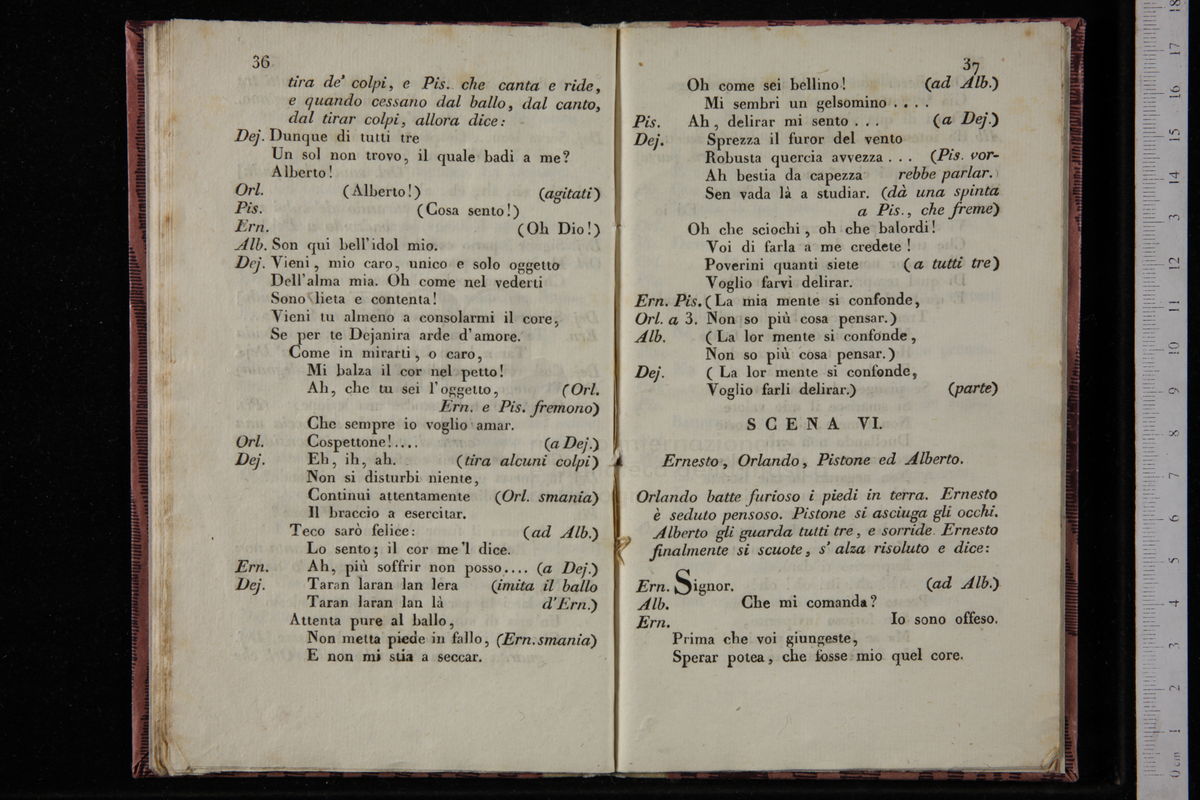 36
tira de' colpi, e Pis. che canta e ride,
e quando cessano dal ballo, dal canto,
dal tirar colpi, allora dice:
Dej. Dunque di tutti tre
Un sol non trovo, il quale badi a me?
Alberto!
Orl. (Alberto!) (agitati)
Pis. (Cosa sento!)
Ern. (Oh Dio!)
Alb. Son qui bell'idol mio.
Dej. Vieni, mio caro, unico e solo oggetto
Dell'alma mia. Oh come nel vederti
Sono lieta e contenta!
Vieni tu almeno a consolarmi il core,
Se per te Dejanira arde d'amore.
Come in mirarti, o caro,
Mi balza il cor nel petto!
Ah, che tu sei l'oggetto, (Orl.
Ern. e Pis. fremono)
Che sempre io voglio amar.
Orl. Cospettone!.... (a Dej.)
Dej. Eh, ih, ah. (tira alcuni colpi)
Non si disturbi niente,
Continui attentamente (Orl. smania)
Il braccio a esercitar.
Teco sarò felice: (ad Alb.)
Lo sento; il cor me'l dice.
Ern. Ah, più soffrir non posso.... (a Dej.)
Dej. Taran laran lan lera (imita il ballo
Taran laran lan là d'Ern.)
Attenta pure al ballo,
Non metta piede in fallo, (Ern. smania)
E non mi stia a seccar.
37
Oh come sei bellino! (ad Alb.)
Mi sembri un gelsomino . . . .
Pis. Ah, delirar mi sento . . . (a Dej.)
Dej. Sprezza il furor del vento
Robusta quercia avvezza . . . (Pis. vor-
Ah bestia da capezza rebbe parlar.)
Sen vada là a studiar. (dà una spinta
a Pis., che freme)
Oh che sciochi, oh che balordi!
Voi di farla a me credete!
Poverini quanti siete (a tutti tre)
Voglio farvi delirar.
Ern. Pis. (La mia mente si confonde,
Orl. a 3. Non so più cosa pensar.)
Alb. (La lor mente si confonde,
Non so più cosa pensar.)
Dej. (La lor mente si confonde,
Voglio farli delirar.) (parte)
SCENA VI.
Ernesto, Orlando, Pistone ed Alberto.
Orlando batte furioso i piedi in terra. Ernesto
è seduto pensoso. Pistone si asciuga gli occhi.
Alberto gli guarda tutti tre, e sorride. Ernesto
finalmente si scuote, s' alza risoluto e dice:
Ern. Signor. (ad Alb.)
Alb. Che mi comanda?
Ern. Io sono offeso.
Prima che voi giungeste,
Sperar potea, che fosse mio quel core.
0 cm 1 2 3 4 5 6 7 8 9 10 11 12 13 14 15 16 17 18